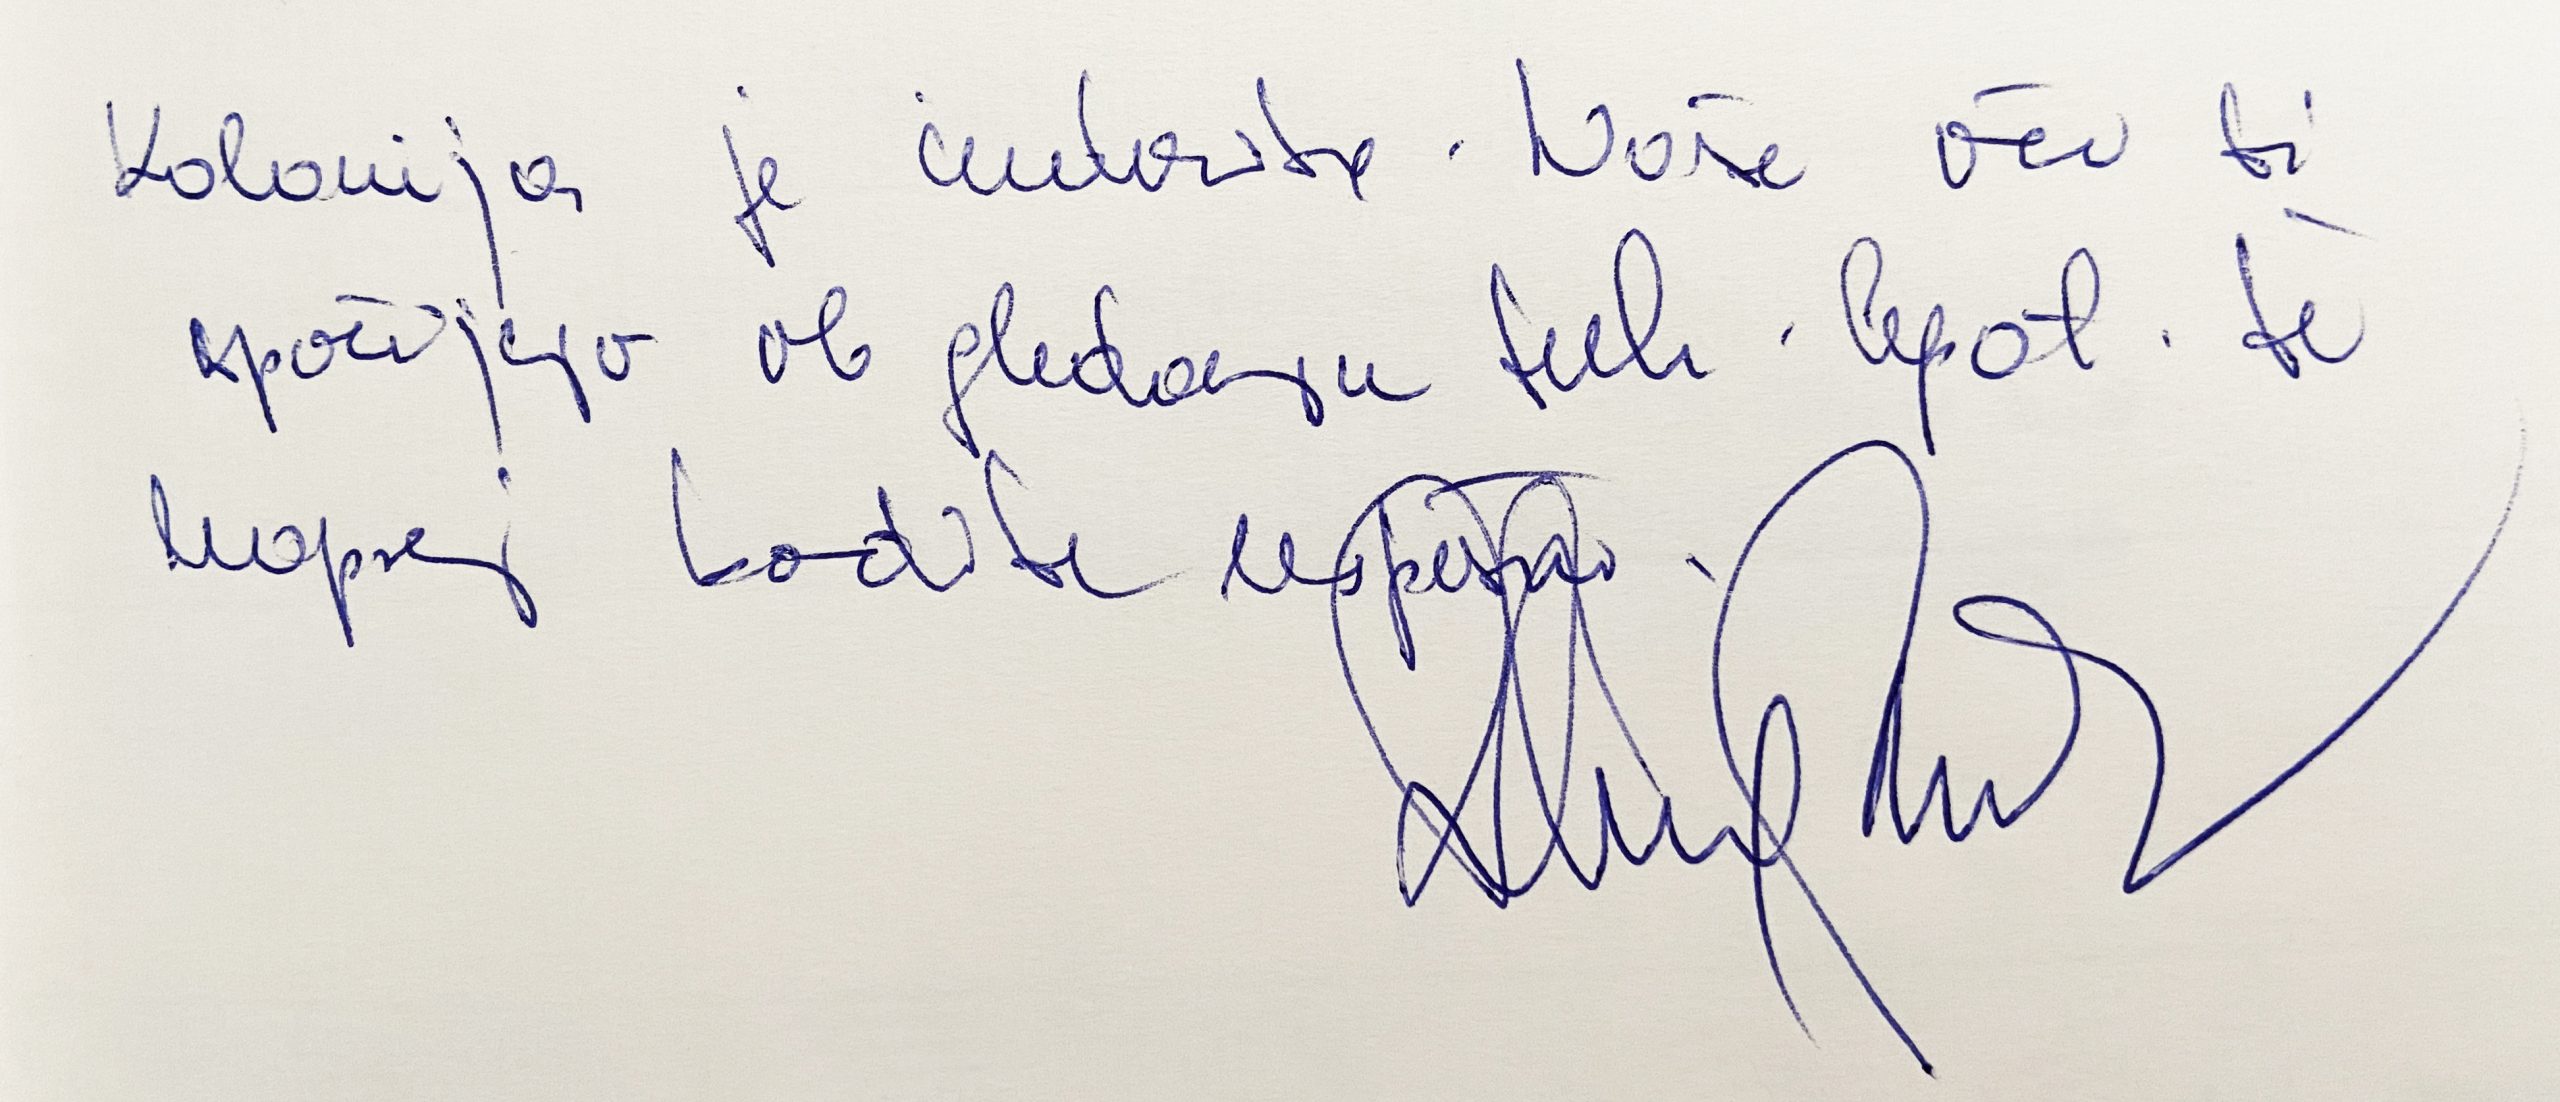 Kolonija je čudovita. Naše oči si
spočijejo ob gledanju teh lepot. Še
naprej bodite uspešni.